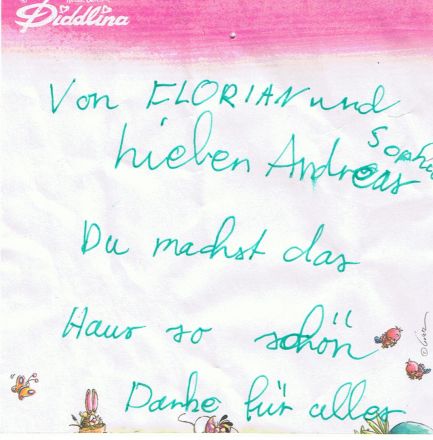 Diddlina
Von FLORIAN und
Sophie
Lieben Andreas
Du machst das
Haus so schön
Danke für alles